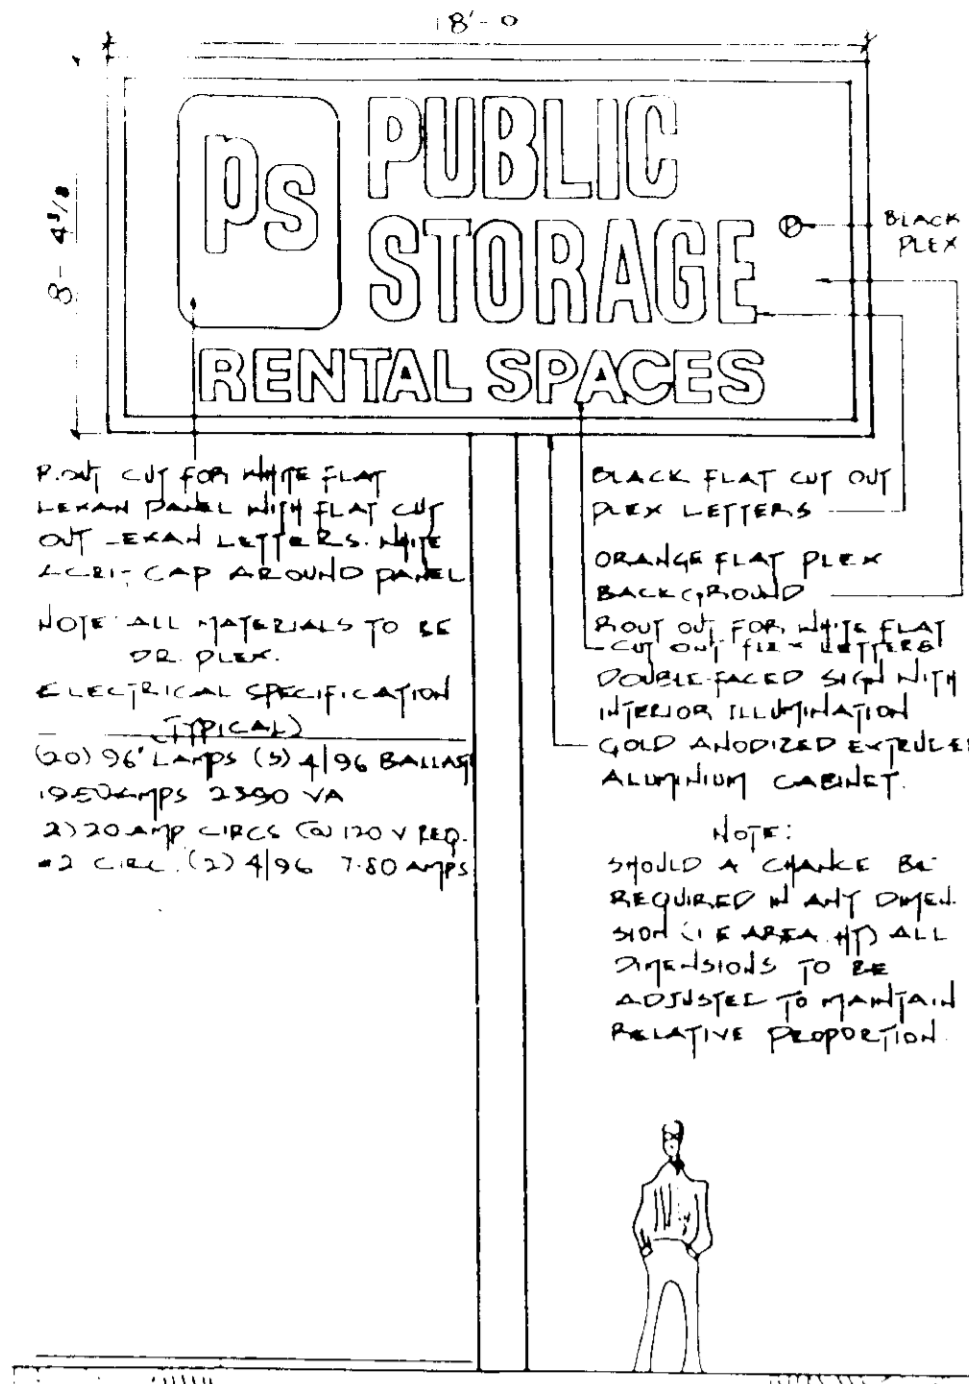 18'-0
8-4 3/8
ps
PUBLIC
STORAGE
®
RENTAL SPACES
BLACK
PLEX
CUT FOR WHITE FLAT
LEXAN PANEL WITH FLAT CUT
OUT LEXAN LETTERS. WHITE
ACRI-CAP AROUND PANEL
NOTE: ALL MATERIALS TO BE
DR. PLEX.
ELECTRICAL SPECIFICATION
(TYPICAL)
(20) 96" LAMPS (5) 4/96 BALLAST
19.50 AMPS 2390 VA
2) 20 AMP CIRCS @ 120 V REQ.
#2 CIRC. (2) 4/96 7.80 AMPS
BLACK FLAT CUT OUT
PLEX LETTERS
ORANGE FLAT PLEX
BACKGROUND
ROUT OUT FOR WHITE FLAT
CUT OUT PLEX LETTERS
DOUBLE-FACED SIGN WITH
INTERIOR ILLUMINATION
GOLD ANODIZED EXTRUDED
ALUMINIUM CABINET.
NOTE:
SHOULD A CHANGE BE
REQUIRED IN ANY DIMEN-
SION (I.E AREA, HT) ALL
DIMENSIONS TO BE
ADJUSTED TO MAINTAIN
RELATIVE PROPORTION.